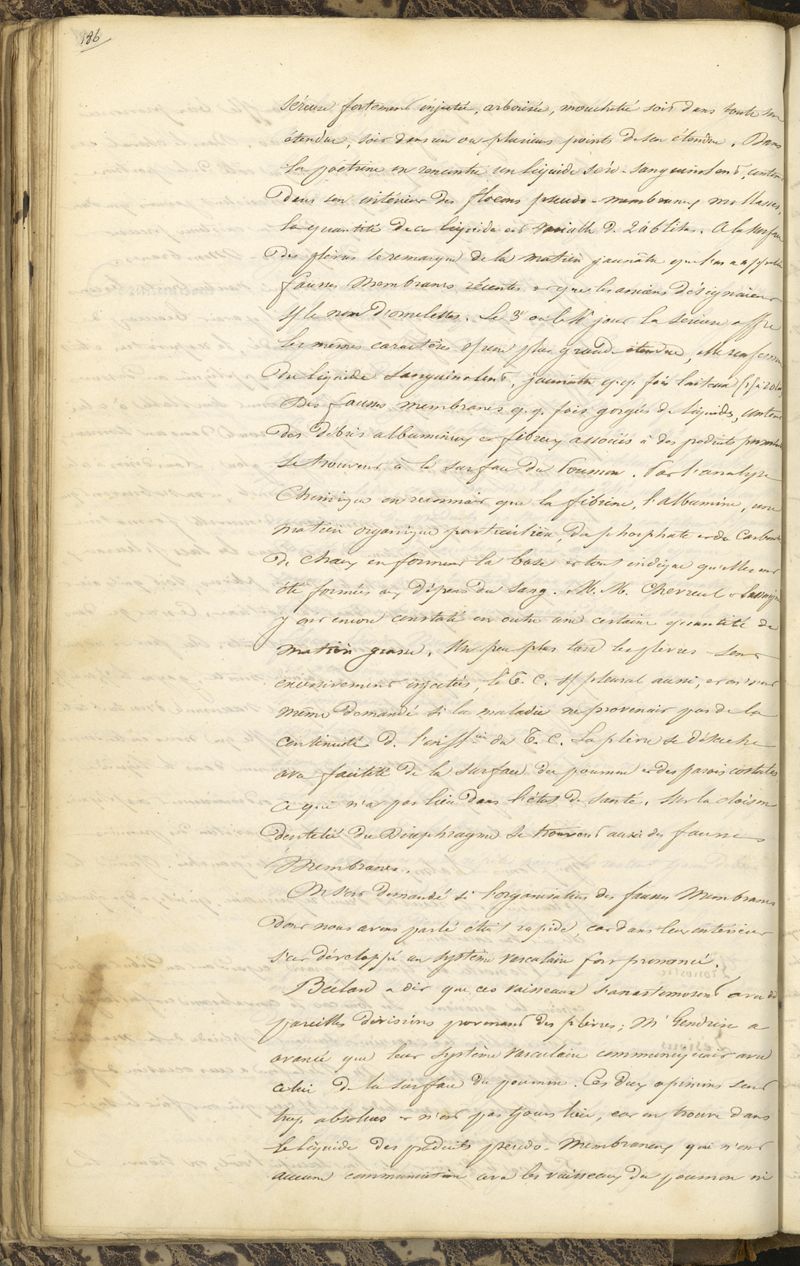 186
séreuse fortement injectée, arborisée, mouchetée soit dans toute son
étendue, soit dans un ou plusieurs points de son étendue. Dans
la poitrine on rencontre un liquide séro-sanguinolent, conten
dans son intérieur des flocons pseudo-membraneux mollasses,
la quantité de ce liquide est variable de 2 à 6 litres. A la surface
des plèvres se remarque de la matière jaunâtre que l'on a appelée
fausses membranes récentes et que les anciens désignaient
s/ le nom d'omelettes. Le 3e ou le 4e jour la séreuse offre
les mêmes caractères s/ une plus grande étendue, elle renferme
du liquide sanguinolent, jaunâtre q.q. fois laiteux
Des fausses membranes q.q. fois gorgées de liquides, conten
des débris albumineux et fibreux associés à des produits
se trouvent à la surface du poumon. Par l'analyse
chimique on reconnait que la fibrine, l'albumine, une
matière organique particulière, du phosphate et du carbonate
de chaux en forment la base et tout indique qu'elles ont
été formées aux dépens du sang. M. M. Chevreul et Lassaigne
y ont encore constaté en outre une certaine quantité de
matière grasse. Un peu plus tard les plèvres sont
excessivement injectées, le T. C. s/pleural aussi, et on s'est
même demandé si la maladie ne provenait pas de la
continuité d. l'inff.on du T. C. La plèvre se détache
avec facilité de la surface du poumon et des parois costales
ce qui n'a pas lieu dans l'état de santé. Sur la cloison
dentelée du diaphragme se trouvent aussi des fausses
membranes.
On s'est demandé si l'organisation des fausses membranes
dont nous avons parlé était rapide, car dans leur intérieur
s'est développé un système vasculaire fort prononcé.
Béclard a dit que ces vaisseaux s'anastomosent avec de
pareilles divisions provenant des plèvres; Mr Gendrin a
avancé que leur système vasculaire communiquait avec
celui de la surface du poumon. Ces deux opinions sont
trop absolues et n'ont pas tjours lieu, car on trouve dans
le liquide des produits pseudo-membraneux qui n'ont
aucune communication avec les vaisseaux du poumon ni